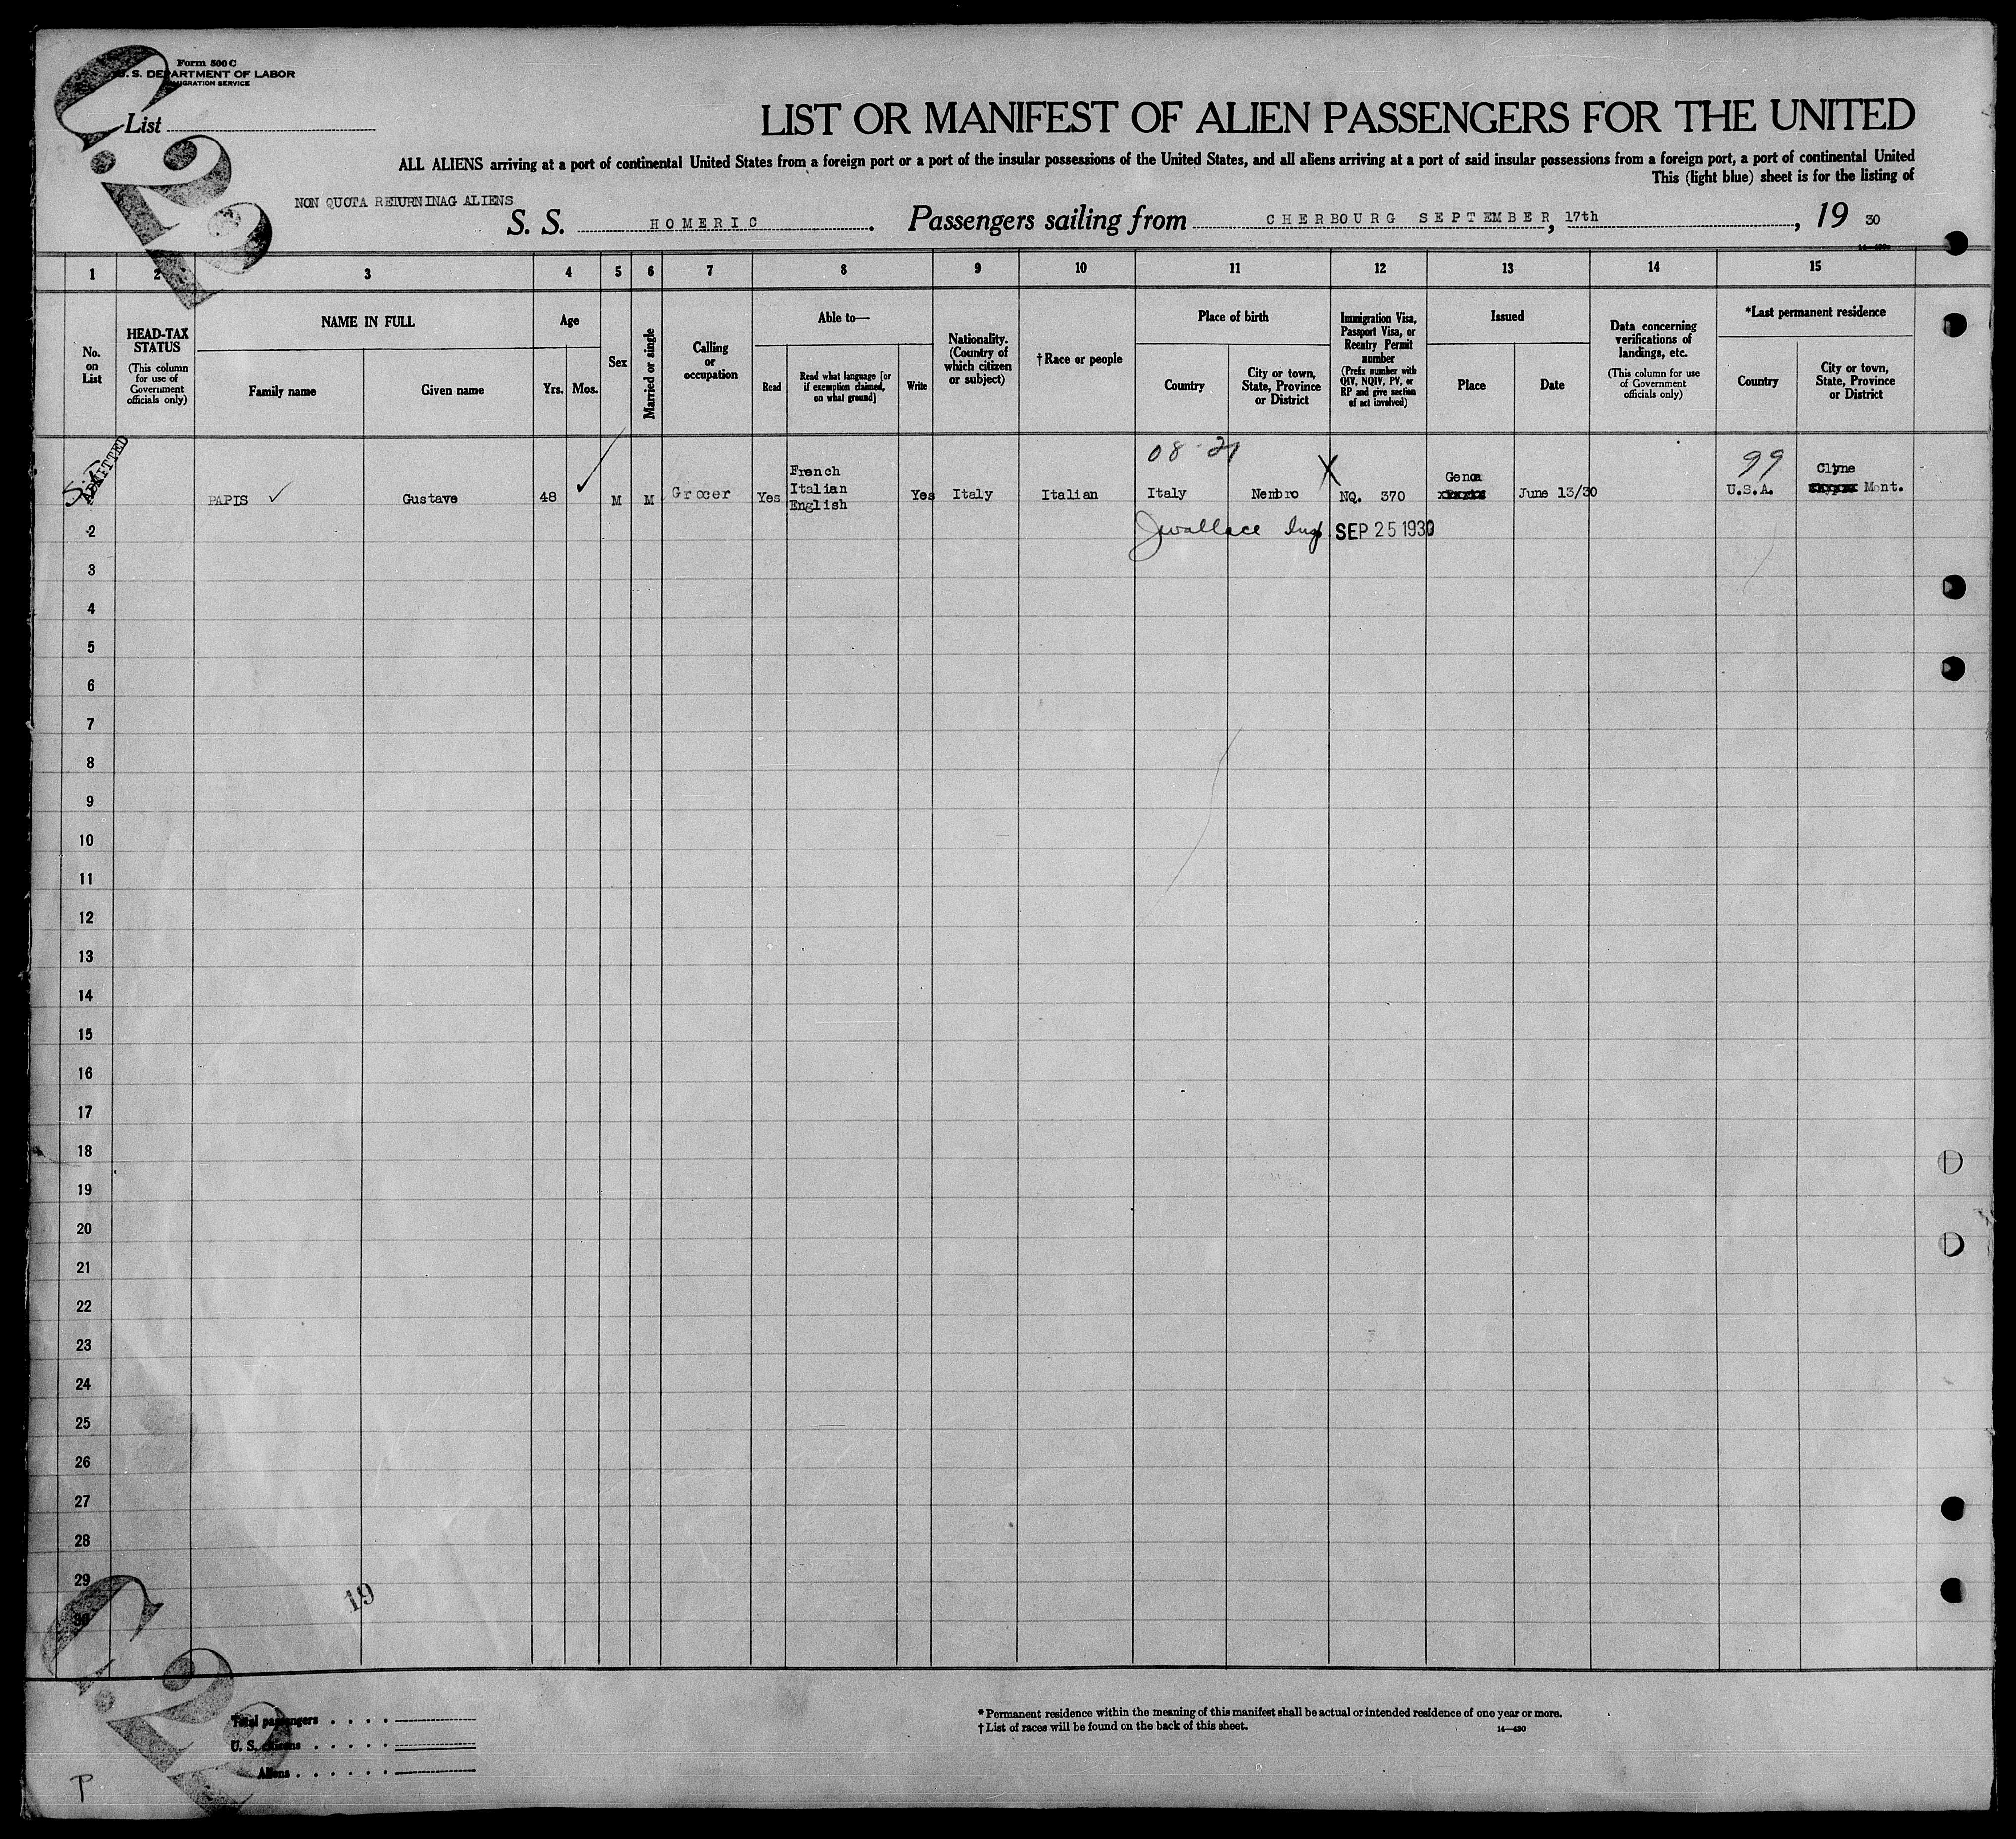 Form 500 C
U. S. DEPARTMENT OF LABOR
IMMIGRATION SERVICE
List
LIST OR MANIFEST OF ALIEN PASSENGERS FOR THE UNITED
ALL ALIENS arriving at a port of continental United States from a foreign port or a port of the insular possessions of the United States, and all aliens arriving at a port of said insular possessions from a foreign port, a port of continental United
This (light blue) sheet is for the listing of
NON QUOTA RETURNINAG ALIENS
S. S. HOMERIC. Passengers sailing from CHERBOURG SEPTEMBER, 17th, 19 30
1 2 3 4 5 6 7 8 9 10 11 12 13 14 15
No. on List
HEAD-TAX STATUS
(This column for use of Government officials only)
NAME IN FULL
Family name
Given name
Age
Yrs. Mos.
Sex
Married or single
Calling or occupation
Able to—
Read
Read what language [or if exemption claimed, on what ground]
Write
Nationality. (Country of which citizen or subject)
†Race or people
Place of birth
Country
City or town, State, Province or District
Immigration Visa, Passport Visa, or Reentry Permit number
(Prefix number with QIV, NQIV, PV, or RP and give section of act involved)
Issued
Place
Date
Data concerning verifications of landings, etc.
(This column for use of Government officials only)
*Last permanent residence
Country
City or town, State, Province or District
ADMITTED
08-21
99
PAPIS Gustave 48 M M Grocer Yes French Italian English Yes Italy Italian Italy Nembro X NQ. 370 Genoa June 13/30 U.S.A. Clyne Mont.
2
JWallace Insp SEP 25 1930
3
4
5
6
7
8
9
10
11
12
13
14
15
16
17
18
19
20
21
22
23
24
25
26
27
28
29
30
19
Total passengers
U. S. citizens
Aliens
* Permanent residence within the meaning of this manifest shall be actual or intended residence of one year or more.
† List of races will be found on the back of this sheet.
14—430
P